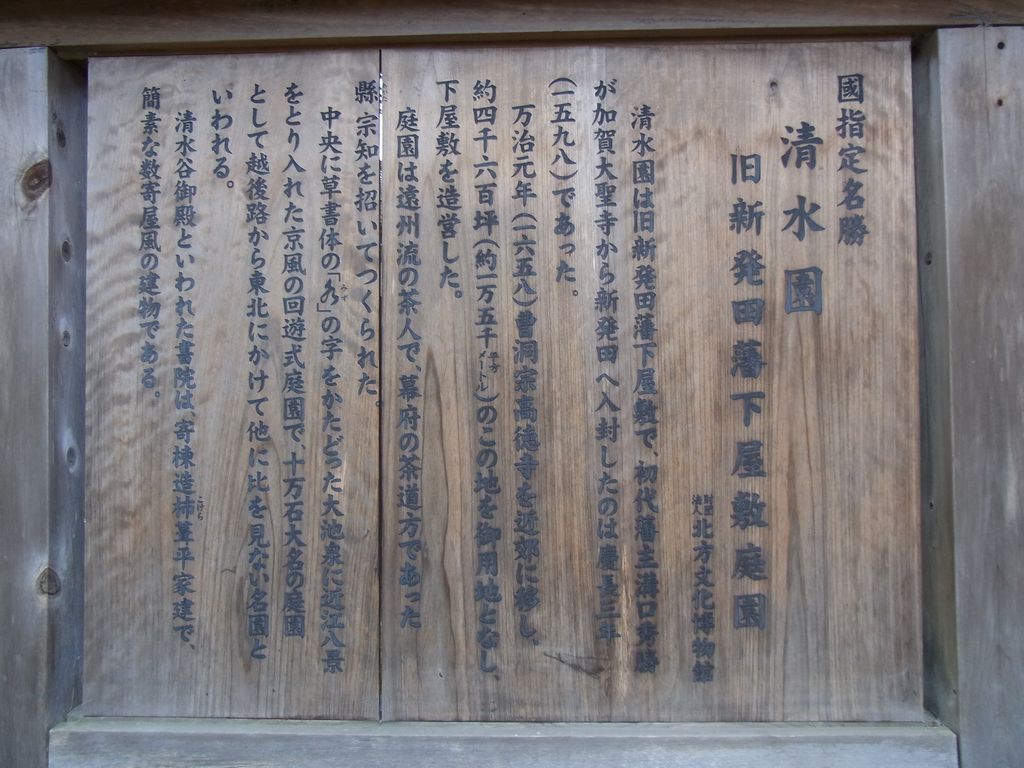 國指定名勝
清水園
旧新発田藩下屋敷庭園
財団法人北方文化博物館
清水園は旧新発田藩下屋敷で、初代藩主溝口秀勝
が加賀大聖寺から新発田へ入封したのは慶長三年
(一五九八)であった。
万治元年(一六五八)曹洞宗高徳寺を近郊に移し、
約四千六百坪(約一万五千平方メートル)のこの地を御用地となし、
下屋敷を造営した。
庭園は遠州流の茶人で、幕府の茶道方であった
縣宗知を招いてつくられた。
中央に草書体の「水」の字をかたどった大池泉に近江八景
みず
をとり入れた京風の回遊式庭園で、十万石大名の庭園
として越後路から東北にかけて他に比を見ない名園と
いわれる。
清水谷御殿といわれた書院は、寄棟造杮葺平家建で、
こけら
簡素な数寄屋風の建物である。